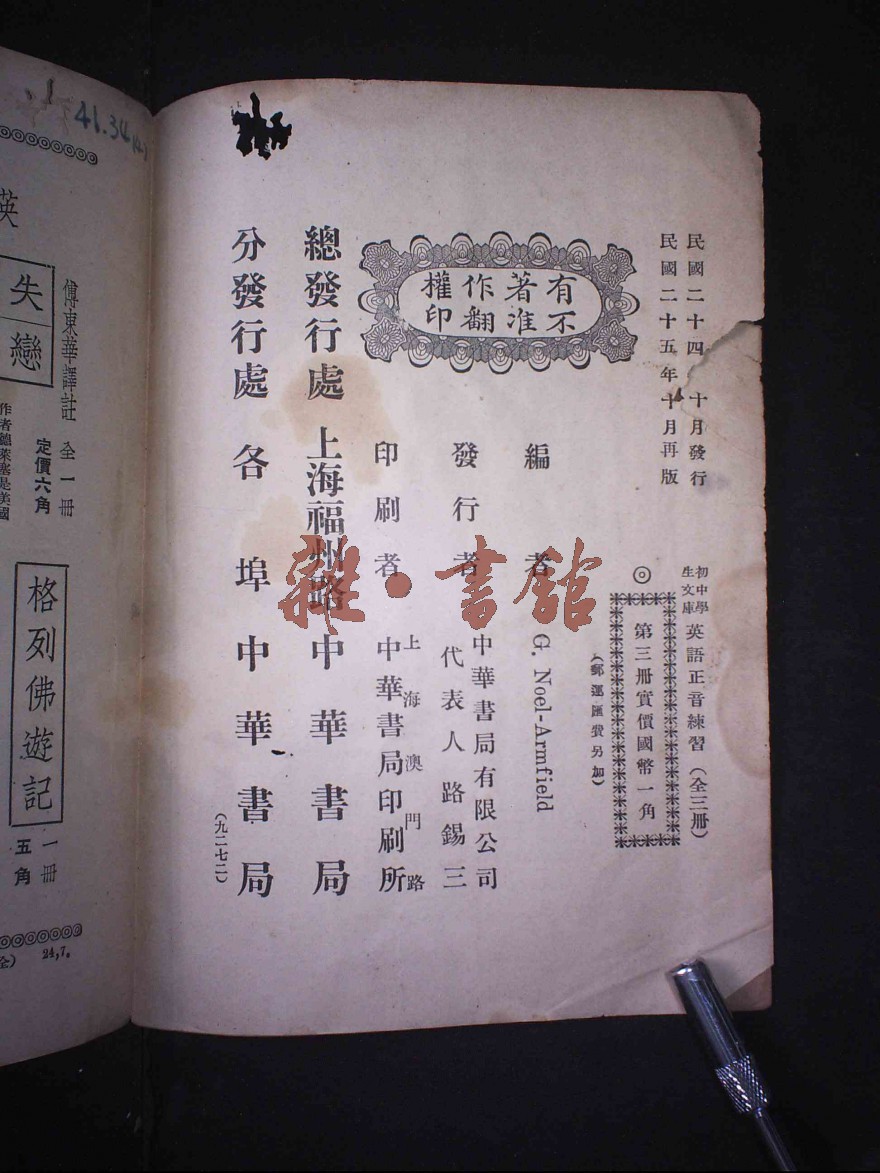 民國二十四 十月發行
民國二十五年十月再版
初中學
生文庫
英語正音練習（全三册）
◎
第三册實價國幣一角
（郵運匯費另加）
有不
著准
作翻
權印
編者
G. Noel-Armfield
發行者
中華書局有限公司
代表人路錫三
印刷者
上海澳門路
中華書局印刷所
總發行處
上海福州路
中華書局
分發行處
各埠中華書局
（九二七二）
雜·書館
41.34
英
傅東華譯註
全一册
失戀
定價六角
格列佛遊記
一册
五角
24,7.